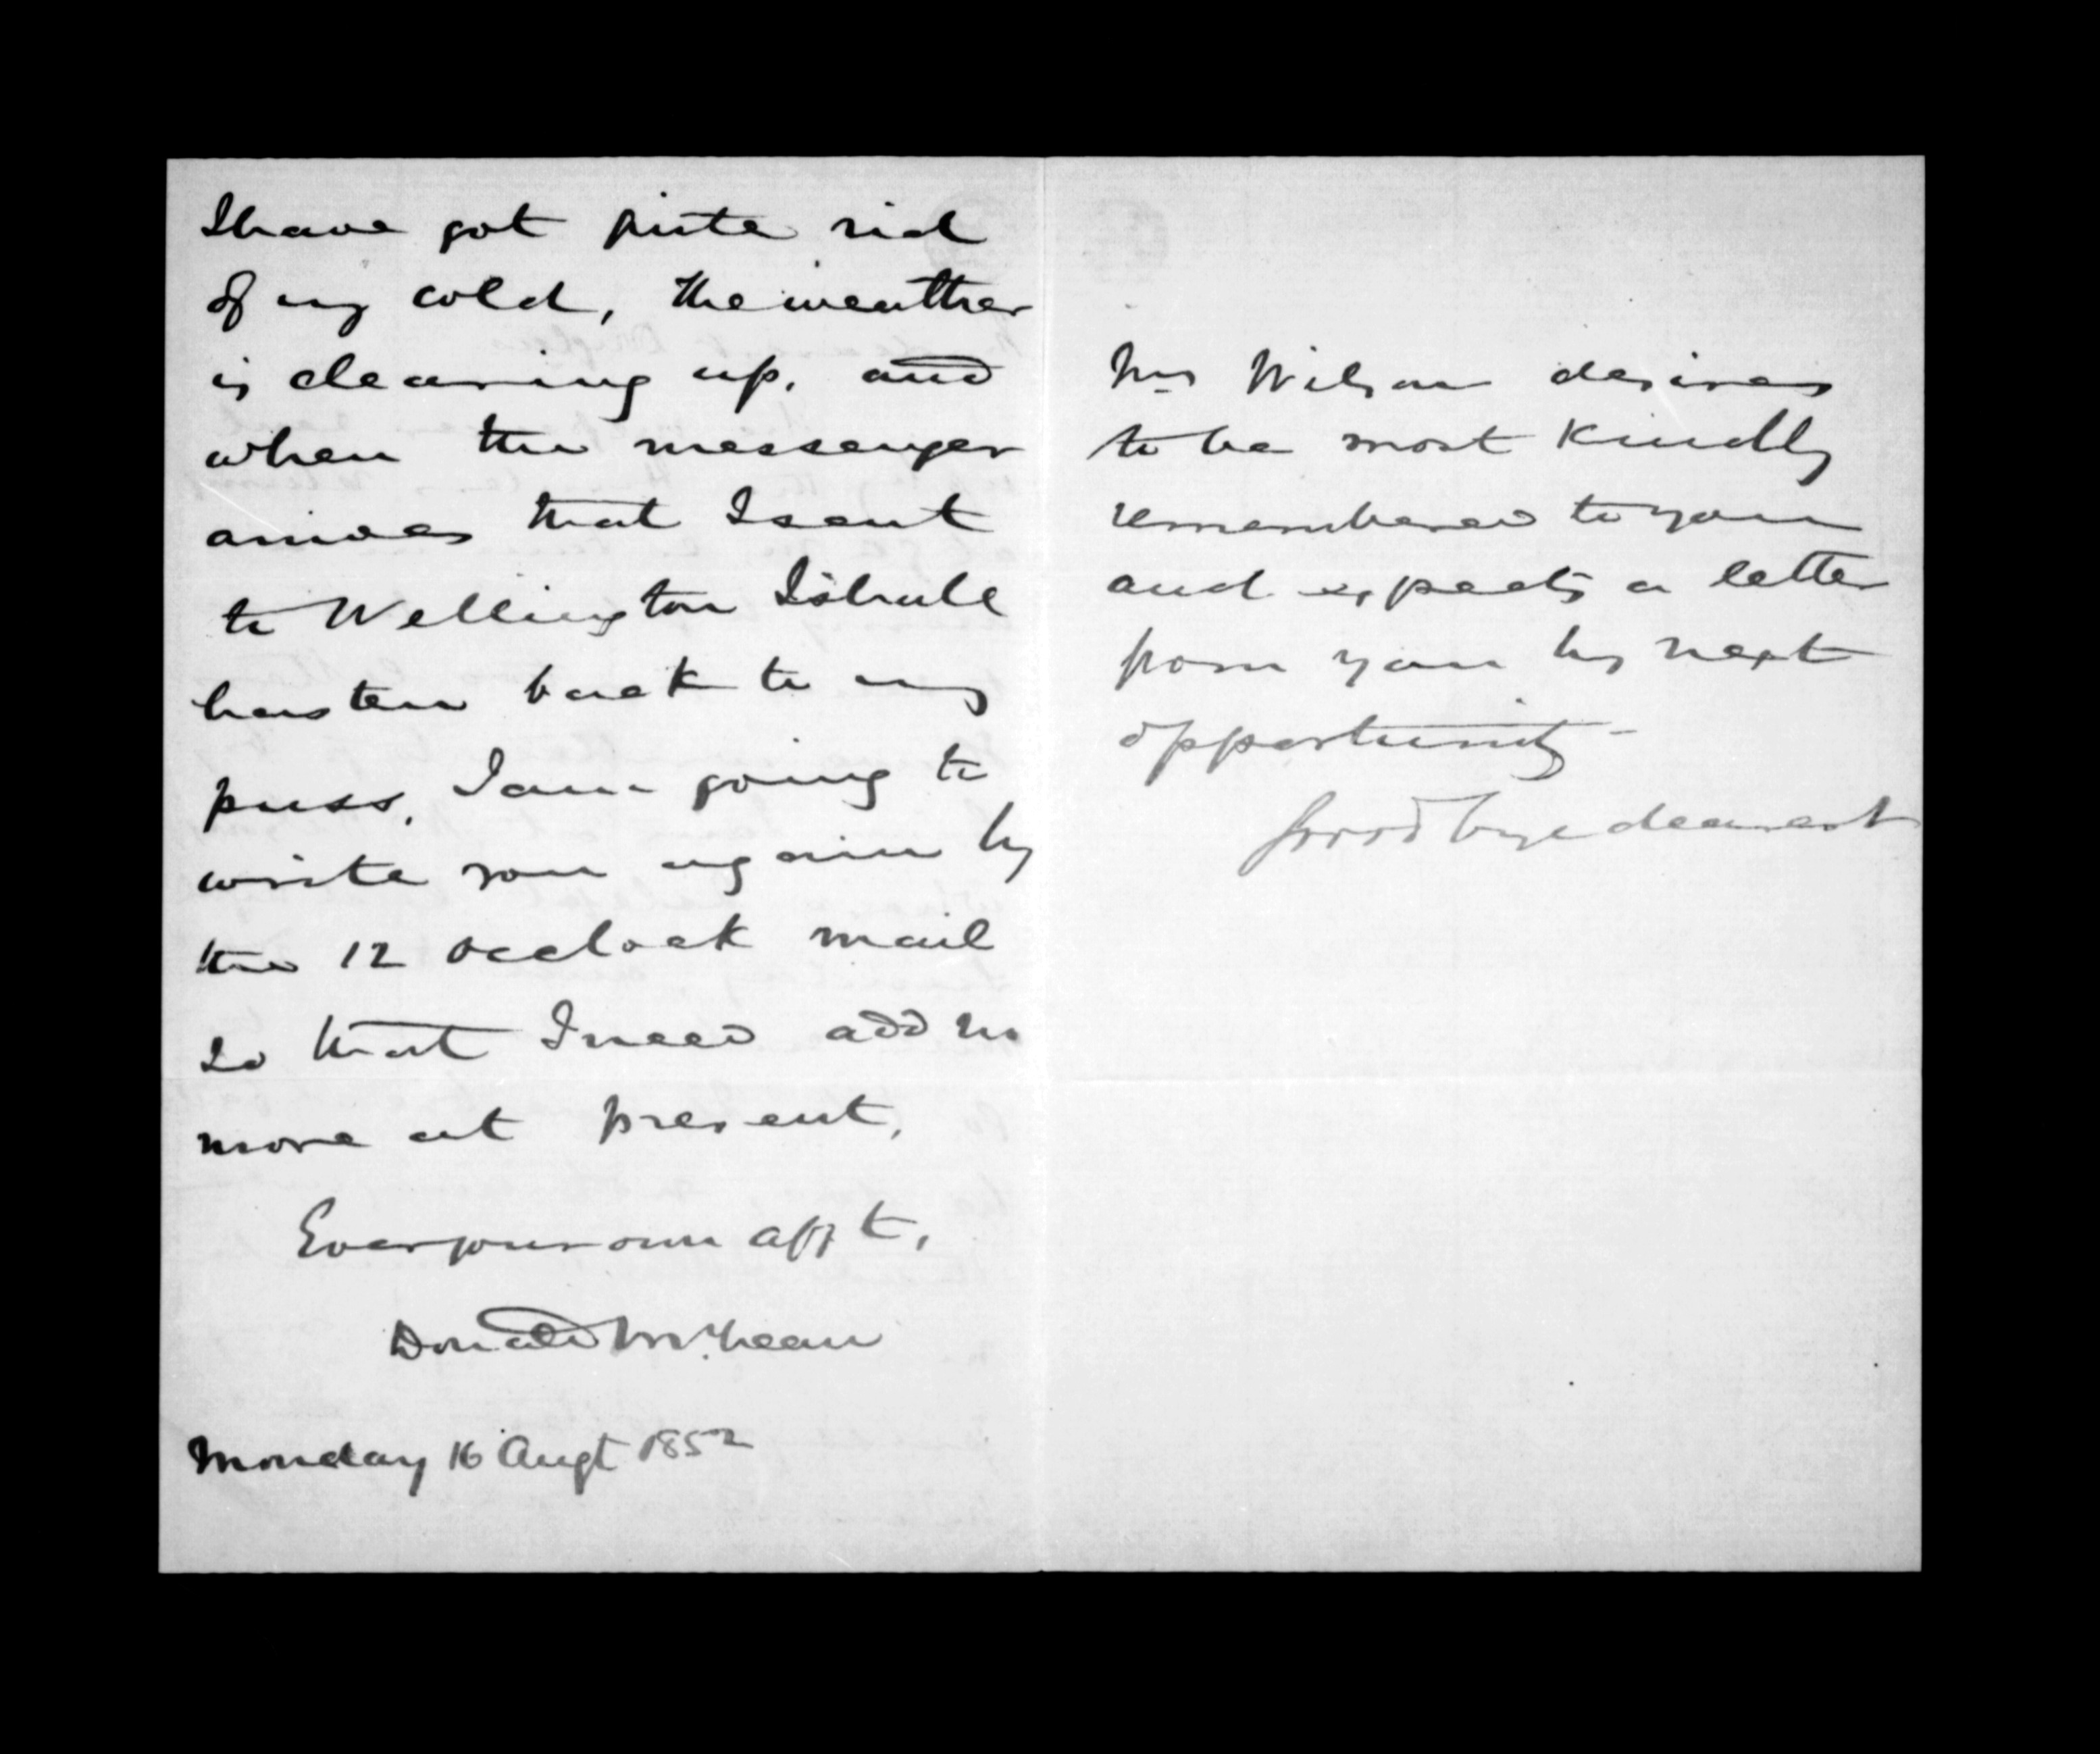 I have got quite rid
of my cold, the weather
is clearing up, and
when the messenger
arrives that I sent
to Wellington I shall
hasten back to my
puss, I am going to
write you again by
the 12 occlock mail
so that I need add no
more at present,
Ever your own afft,
Donald McLean
Monday 16 Augt 1852
Mrs Wilson desires
to be most kindly
remembered to you
and expects a letter
from you by next
opportunity -
good bye dearest